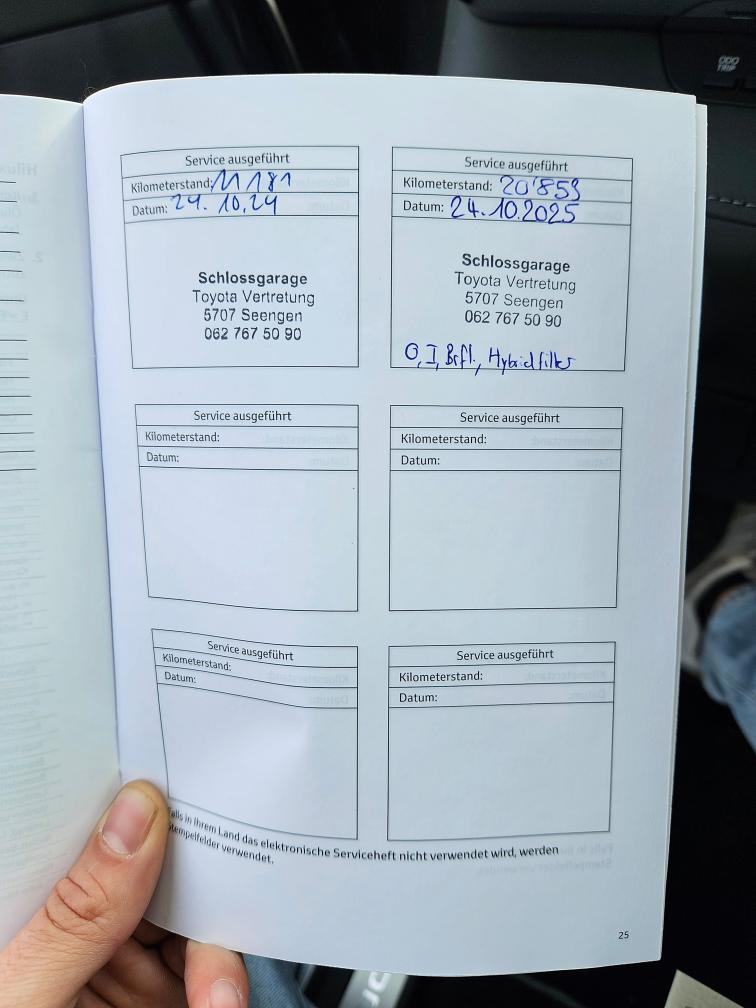 ODO
TRIP
Service ausgeführt
Kilometerstand: 11 181
Datum: 24. 10.24
Schlossgarage
Toyota Vertretung
5707 Seengen
062 767 50 90
Service ausgeführt
Kilometerstand: 20'853
Datum: 24.10.2025
Schlossgarage
Toyota Vertretung
5707 Seengen
062 767 50 90
O, I, Brfl., Hybridfilter
Service ausgeführt
Kilometerstand:
Datum:
Service ausgeführt
Kilometerstand:
Datum:
Service ausgeführt
Kilometerstand:
Datum:
Service ausgeführt
Kilometerstand:
Datum:
Falls in Ihrem Land das elektronische Serviceheft nicht verwendet wird, werden
Stempelfelder verwendet.
25